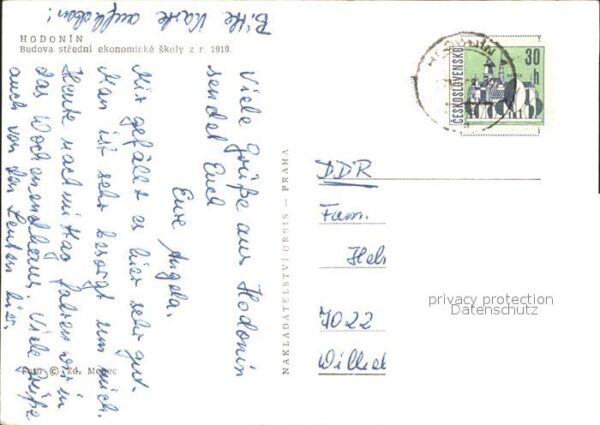 Bitte Karte aufheben!
HODONÍN
Budova střední ekonomické školy z r. 1919.
Viele Grüße aus Hodonín
sendet Euch
Eure Angela.
Mir gefällt es hier sehr gut.
Man ist sehr besorgt um mich.
Heute nachmittag fahren wir in
das Wochenendhaus. Viele Grüße
auch von den Leuten hier.
Foto © Zd. 
NAKLADATELSTVÍ ORBIS — PRAHA
HODONÍN
ČESKOSLOVENSKO
30 h
DDR
Fam.
Hel
7022
privacy protection
Datenschutz